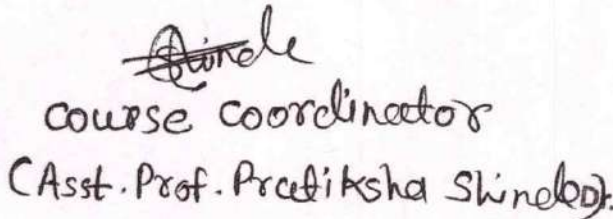 Shinde
course coordinator
(Asst. Prof. Pratiksha Shinde D).